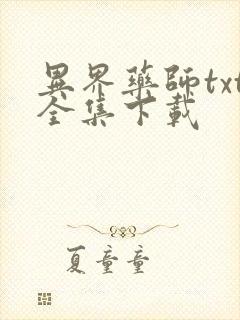 異界藥師txt
全集下載
夏童童